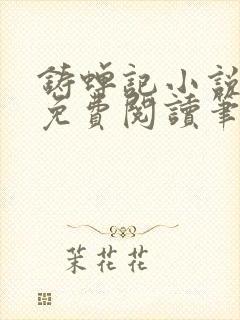 鋳蟬記小說
免費閱讀筆
茉花花